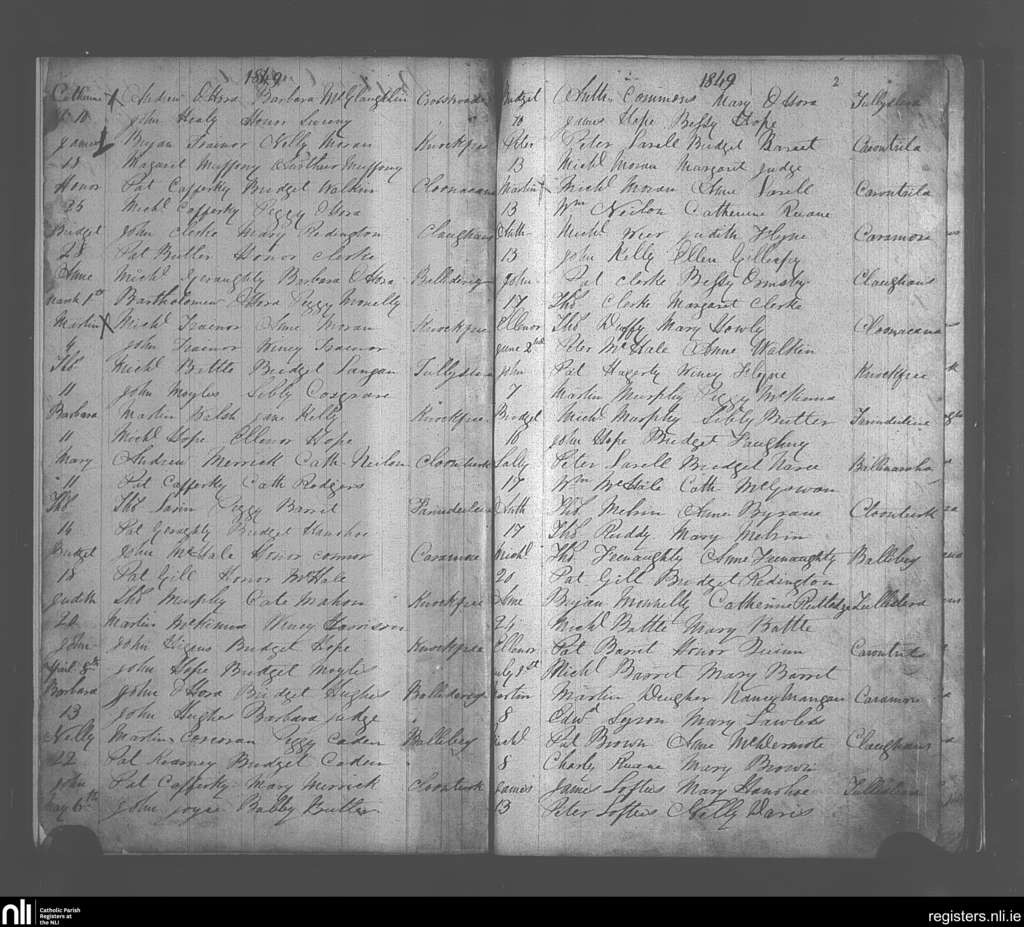 1849
Catherine Andrew O'Hora Barbara McGlaughlin Crossroads
10 John Healy Honor Sweeny
James Bryan Trainor Nelly Moran Knockfree
18 Margaret Muffony Arthur Muffony
Honor Pat Cafferky Bridget Walken Cloonacana
25 Michl Cafferky Peggy O'Hora
Bridget John Clerke Mary Redington Claughans
28 Pat Butler Honor Clerke
Anne Michl Geraughty Barbara O'Hora Ballederig
March 1st Bartholomew O'Hora Peggy Munelly
Martin Michl Trainor Anne Moran Knockfree
4 John Trainor Winey Trainor
Ths Michl Battle Bridget Langan Tullyslena
11 John Moyles Sibby Cosgrave
Barbara Martin Walsh Jane Kelly Knockfree
11 Michl Hope Ellenor Hope
Mary Andrew Merrick Cath Neilon Cloonturk
11 Pat Cafferky Cath Rodgers
Ths Ths Peggy Barret
14 Pat Geraghty Bridget Hanshoe
Bridget John McHale Honor Connor Caramore
18 Pat Gill Honor McHale
Judith Ths Murphy Cate Mahon Knockfree
20 Martin McKinna Winey Harrison
John John Higens Bridget Hope Knockfree
April 8th John Hope Bridget Moyles
Barbara John O'Hora Bridget Hughes Ballederig
13 John Hughes Barbara Judge
Nelly Martin Corcoran Peggy Caden Ballebey
22 Pat Kearney Bridget Caden
John Pat Cafferky Mary Merrick Cloonturk
May 6th John Joyce Babby Butler
1849 2
Bridget Commons Mary O'Hora Tullyslena
10 James Hope Bessy Hope
Peter Peter Sarell Bridget Barret Carontrila
13 Michl Moran Margaret Judge
Martin Michl Moran Anne Sarell Carontrila
13 Wm Neilon Catherine Ruane
Cath Michl Weer Judith Flyne Caramore
13 John Kelly Ellen Gillespy
John Pat Clerke Bessy Ormsby Claughans
17 Ths Clerke Margaret Clerke
Ellenor Ths Duffy Mary Howly Cloonacana
June 2nd Peter McHale Anne Walken
John Pat Hagerty Winey Flyne Knockfree
7 Martin Murphy Peggy McKinna
Bridget Michl Murphy Sibly Butler
10 John Hope Bridget
Sally Peter Sarell Bridget Naree
17 Wm McHale Cath McGowan
Cath Ths Melvin Anne Byrane Cloonturk
17 Ths Ruddy Mary Melvin
Michl Ths Freenaughty Anne Freenaughty Ballebey
20 Pat Gill Bridget Redington
Anne Bryan Munnelly Catherine Rutledge Tulleslena
24 Michl Battle Mary Battle
Ellenor Pat Barret Honor Quinn
July 1st Michl Barret Mary Barret
Martin Martin Deugher Nancy Mangan Caramore
8 Edwd Lyson Mary Lawless
Michl Pat Brown Anne McDermote Claughans
8 Charles Ruane Mary Brown
James James Loftus Mary Hanshoe Tulleslena
13 Peter Loftus Nelly Davis
nli Catholic Parish
Registers at
the NLI
registers.nli.ie